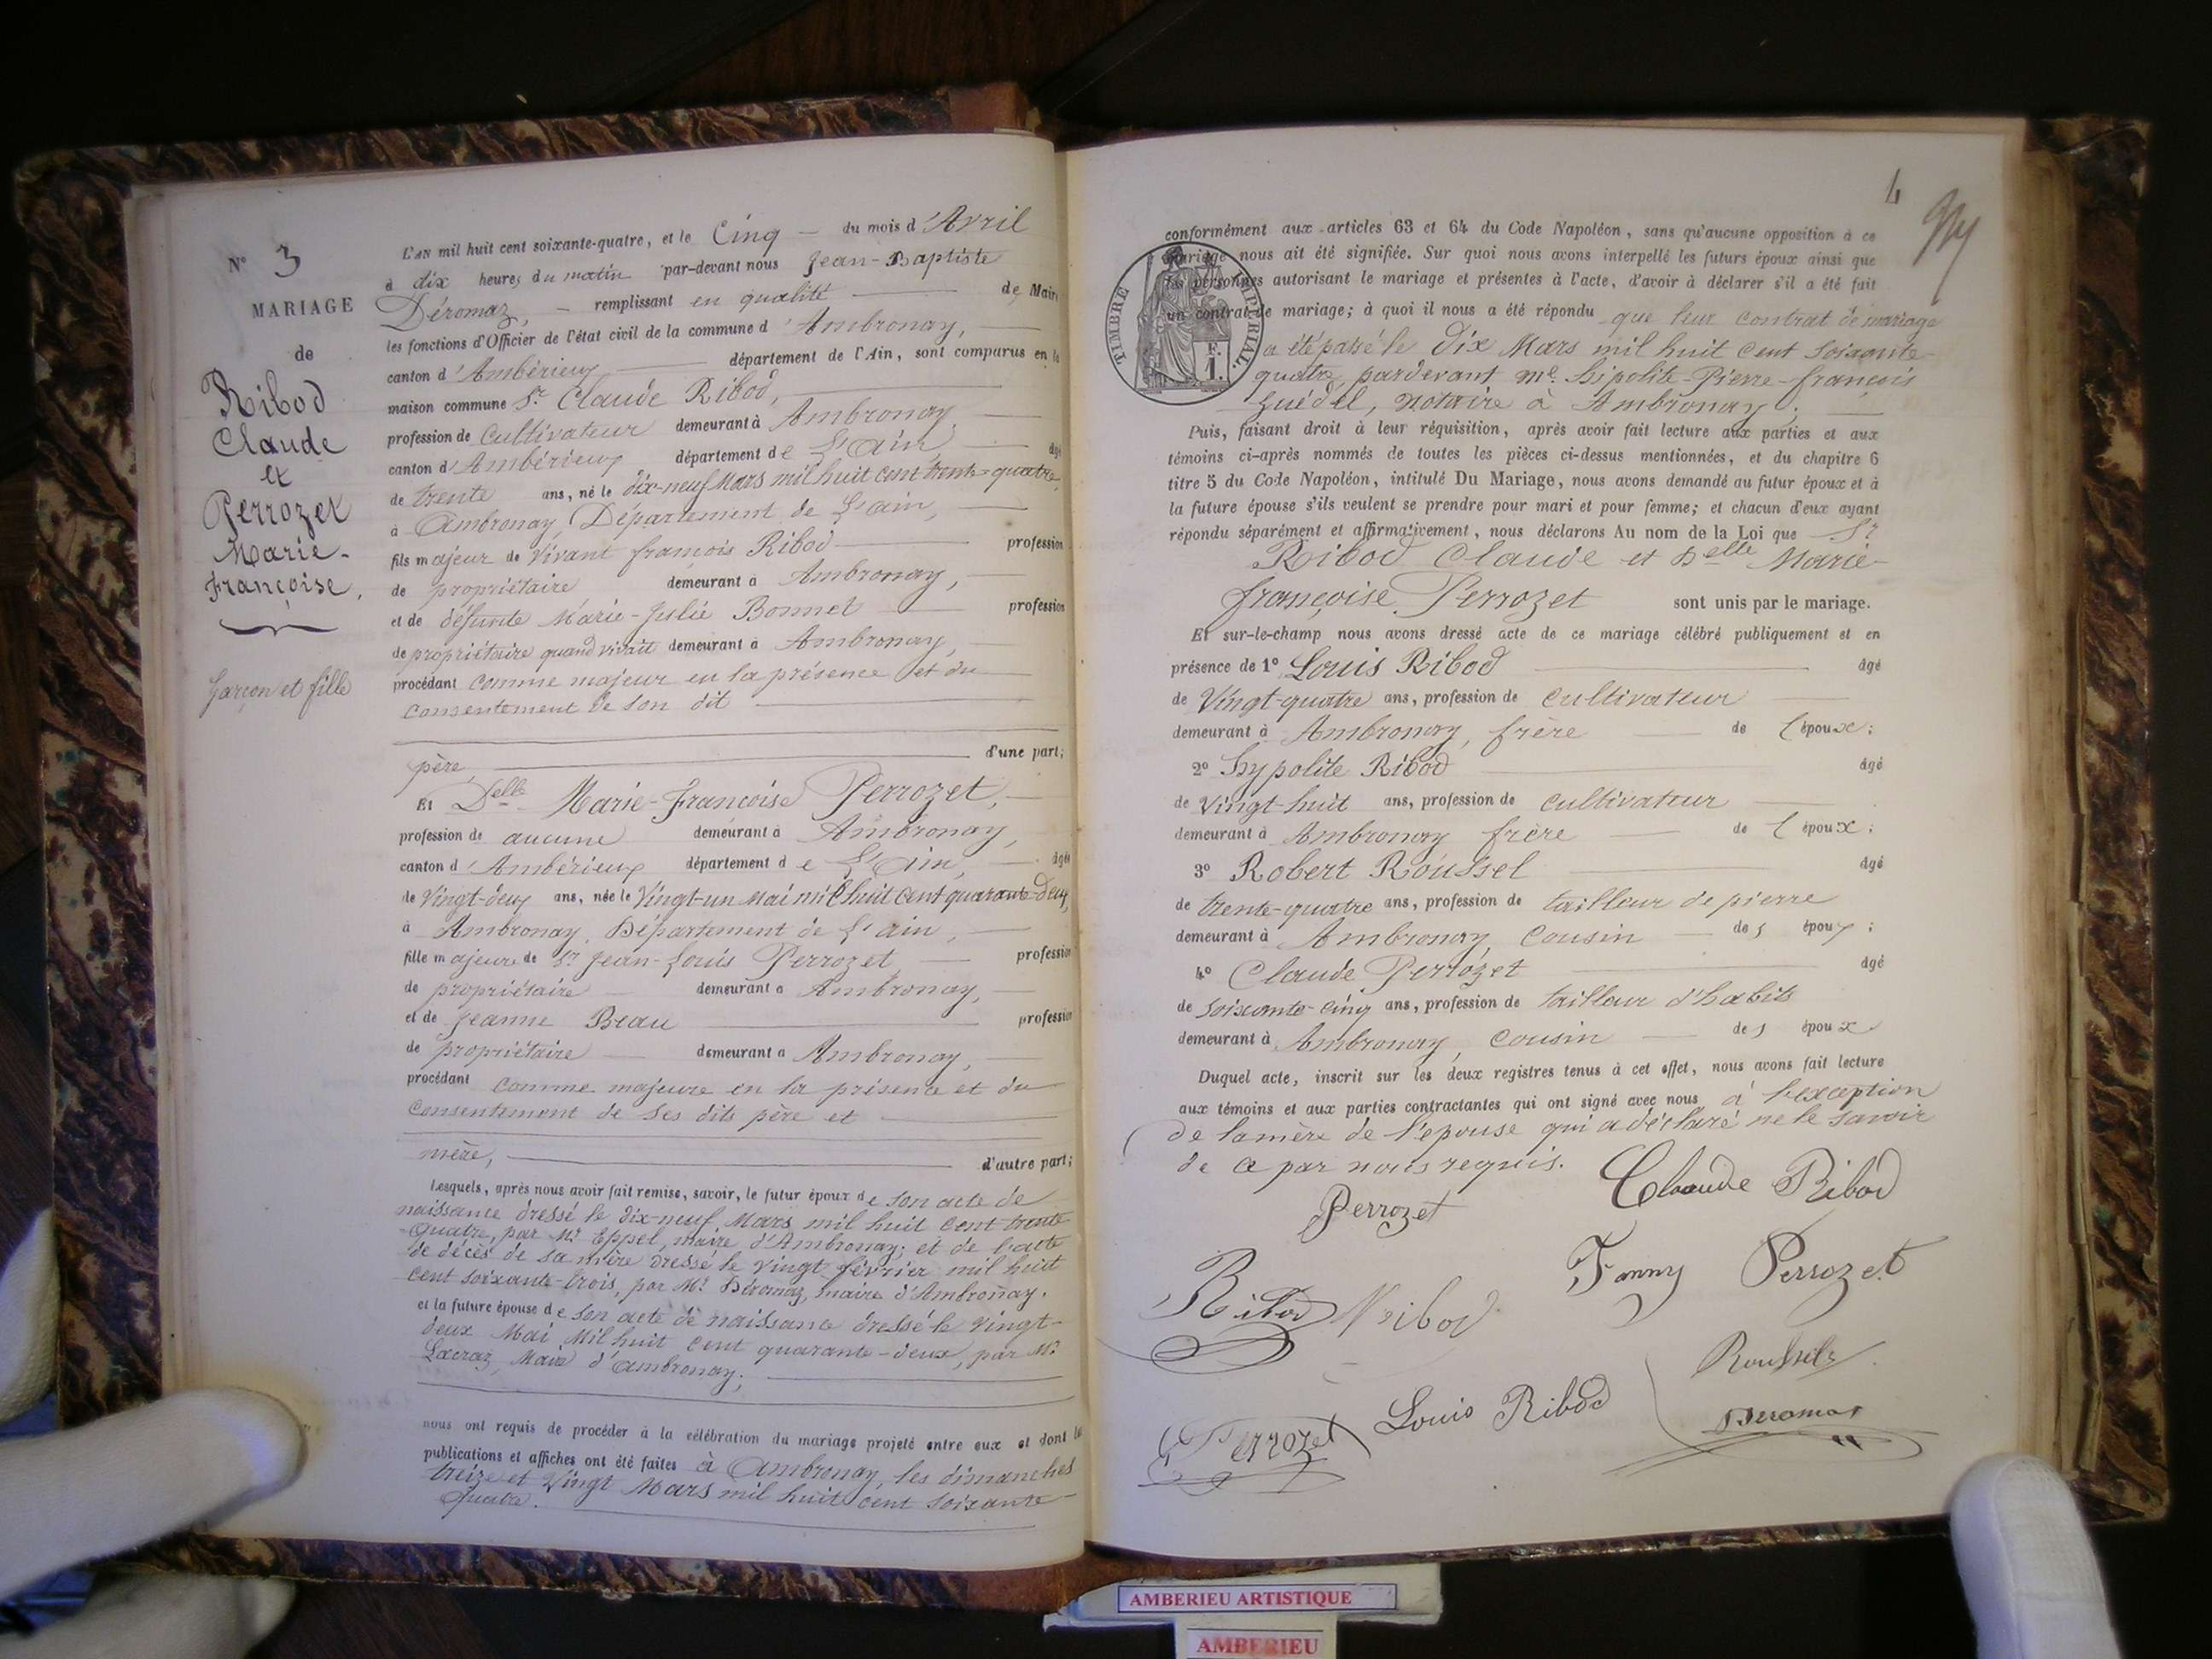 N° 3
MARIAGE
de
Ribod
Claude
et
Perrozet
Marie-
Françoise,
Garçon et fille
L'AN mil huit cent soixante-quatre, et le Cinq du mois d'Avril
à dix heures du matin par-devant nous Jean-Baptiste
Déromaz, remplissant en qualité de Maire
les fonctions d'Officier de l'état civil de la commune d'Ambronay,
canton d'Ambérieux département de l'Ain, sont comparus en la
maison commune Sr Claude Ribod,
profession de Cultivateur demeurant à Ambronay
canton d'Ambérieux département de L'Ain, âgé
de trente ans, né le dix-neuf Mars mil huit cent trente-quatre,
à Ambronay, Département de L'ain,
fils majeur de vivant françois Ribod profession
de propriétaire demeurant à Ambronay,
et de défunte Marie-Julie Bonnet profession
de propriétaire quand vivait demeurant à Ambronay,
procédant comme majeur en la présence et du
consentement de son dit
père, d'une part;
Et Delle Marie-françoise Perrozet,
profession de aucune demeurant à Ambronay,
canton d'Ambérieux département de L'Ain, âgée
de Vingt-deux ans, née le Vingt-un Mai mil huit cent quarante-deux,
à Ambronay, Département de L'ain,
fille majeure de Sr Jean-Louis Perrozet profession
de propriétaire demeurant à Ambronay,
et de Jeanne Beau profession
de propriétaire demeurant à Ambronay,
procédant comme majeure en la présence et du
consentement de ses dits père et
mère, d'autre part;
Lesquels, après nous avoir fait remise, savoir, le futur époux de son acte de
naissance dressé le dix-neuf Mars mil huit cent trente
-quatre, par Mr Eppel, maire d'Ambronay; et de l'acte
de décès de sa mère dressé le vingt février mil huit
cent soixante-trois, par Mr Déromaz, maire d'Ambronay.
et la future épouse de son acte de naissance dressé le vingt-
deux Mai Mil huit cent quarante-deux, par Mr
Lacraz, Maire d'Ambronay;
nous ont requis de procéder à la célébration du mariage projeté entre eux et dont les
publications et affiches ont été faites à Ambronay, les dimanches
treize et Vingt Mars mil huit cent soixante-
quatre.
4
conformément aux articles 63 et 64 du Code Napoléon, sans qu'aucune opposition à ce
mariage nous ait été signifiée. Sur quoi nous avons interpellé les futurs époux ainsi que
les personnes autorisant le mariage et présentes à l'acte, d'avoir à déclarer s'il a été fait
un contrat de mariage; à quoi il nous a été répondu que leur contrat de mariage
a été passé le Dix Mars mil huit cent soixante-
quatre, pardevant Me hipolite-Pierre-françois
Guédel, notaire à Ambronay;
TIMBRE IMPÉRIAL
F.
1.
Puis, faisant droit à leur réquisition, après avoir fait lecture aux parties et aux
témoins ci-après nommés de toutes les pièces ci-dessus mentionnées, et du chapitre 6
titre 5 du Code Napoléon, intitulé Du Mariage, nous avons demandé au futur époux et à
la future épouse s'ils veulent se prendre pour mari et pour femme; et chacun d'eux ayant
répondu séparément et affirmativement, nous déclarons Au nom de la Loi que Sr
Ribod Claude et Delle Marie-
françoise Perrozet sont unis par le mariage.
Et sur-le-champ nous avons dressé acte de ce mariage célébré publiquement et en
présence de 1° Louis Ribod âgé
de Vingt-quatre ans, profession de cultivateur
demeurant à Ambronay, frère de l'époux;
2° hypolite Ribod âgé
de Vingt-huit ans, profession de cultivateur
demeurant à Ambronay frère de l'époux;
3° Robert Roussel âgé
de trente-quatre ans, profession de tailleur de pierre
demeurant à Ambronay, cousin des époux;
4° Claude Perrozet âgé
de soixante-cinq ans, profession de tailleur d'habits
demeurant à Ambronay, cousin des époux
Duquel acte, inscrit sur les deux registres tenus à cet effet, nous avons fait lecture
aux témoins et aux parties contractantes qui ont signé avec nous à l'exception
de la mère de l'épouse qui a déclaré ne le savoir
de ce par nous requis.
Claude Ribod
Perrozet
Fanny Perrozet
Ribod
Ribod
Roussel
Louis Ribod
Deromas
Perrozet
AMBERIEU ARTISTIQUE
AMBERIEU